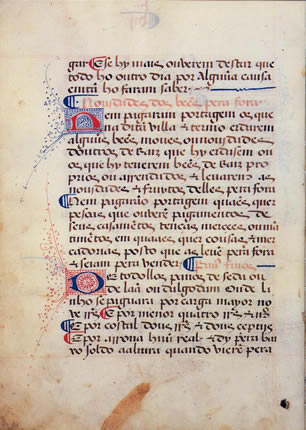 guar. E se hy mais ouverem destar que
todo ho outro dia por alguma causa
emtã ho faram saber
Nouidades dos beẽs pera fora
Nem pagaram portagem os que
na dita villa & termo erdarem
alguũs beẽs moues ou nouidades
doutros de Raiz que hy erdasem ou
os que hy teuerem beẽs de Raiz pro
prios ou arrendados & leuarem as
nouidades & fruytos delles pera fora
Nem pagarão portagem quaẽs quer
pesoas que ouverẽ pagamentos de
seus casamẽtos tenças merçees ou mãti
mẽtos em quaaes quer cousas & mer
cadorias posto que as leuẽ pera fora
& sejam pera vender Panos finos
De todollos panos de seda ou
de laã ou dalgodam ou de li
nho se paguara por carga mayor no
ve rs. E por menor quatro rs. &
E por costal dous rs. & dous çeptijs
E por arroua huũ real & dy pera bai
xo soldo a aliura quando vierẽ pera